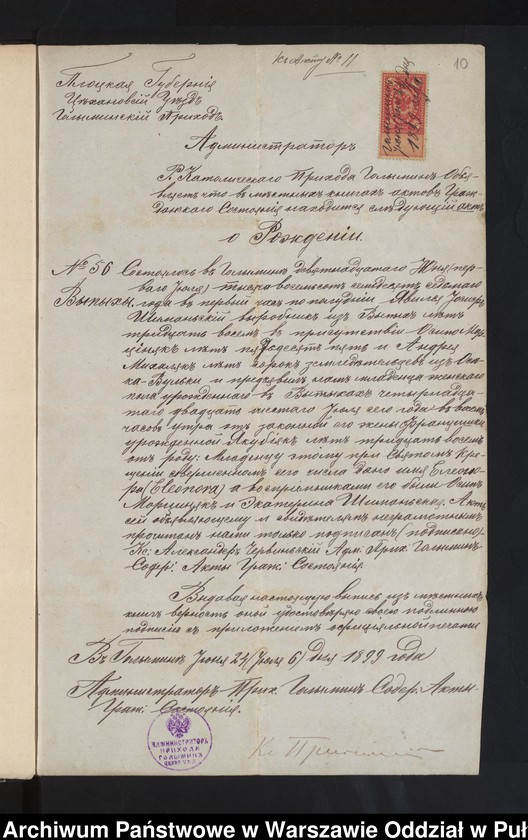 Къ Акту № 11
10
Плоцкая Губернія
Цѣхановскій Уѣздъ
Голыминскій Приходъ.
Администраторъ
Р. Католическаго Прихода Голыминъ Объя-
вляетъ что въ мѣстныхъ книгахъ актовъ Граж-
данскаго Состоянія находится слѣдующій актъ
о Рожденіи.
№ 56 Состоялось въ Голыминѣ девятнадцатаго Юня (пер-
Выпыхы. ваго Юля) тысяча восемьсотъ семьдесятъ седьмаго
года въ первый часъ по полудни. Явился
Шиманьскій выробникъ изъ лѣтъ
тридцать восемь въ присутствіи Осипа
лѣтъ пятьдесятъ пять и Андрея
Михаляк лѣтъ сорокъ земледѣльцевъ изъ
Вульки и предъявилъ намъ младенца женскаго
пола урожденнаго в Выпыхахъ четырнадца-
таго двадцать шестаго Юня сего года въ восемь
часовъ утра отъ законной его жены Францишки
урожденной Якубякъ лѣтъ тридцать восемь
отъ роду; Младенцу этому при Святомъ Кре-
щеніи совершенномъ сего числа дано имя Елеоно-
ра (Eleonora) а воспріемниками его были Осипъ
и Екатерина Шиманьская. Актъ
сей объявляющему и свидѣтелямъ неграмотнымъ
прочитан нами только подписанъ (подписано)
Кс: Александеръ Червиньскій Адм. Прих: Голыминъ
Содер: Акты Граж: Состоянія
Выдавая настоящую выпись изъ мѣстныхъ
книгъ вѣрность оной удостовѣряю своею подлинною
подписью съ приложеніемъ оффиціальной печати
Въ Голыминѣ Юня 24 (Юля 6) дня 1899 года
Администраторъ Прих. Голыминъ Содер. Акты.
Граж: Состоянія.
АДМИНИСТРАТОРЪ
ПРИХОДА
ГОЛЫМИНЪ
Кс
Archiwum Państwowe w Warszawie Oddział w Puł